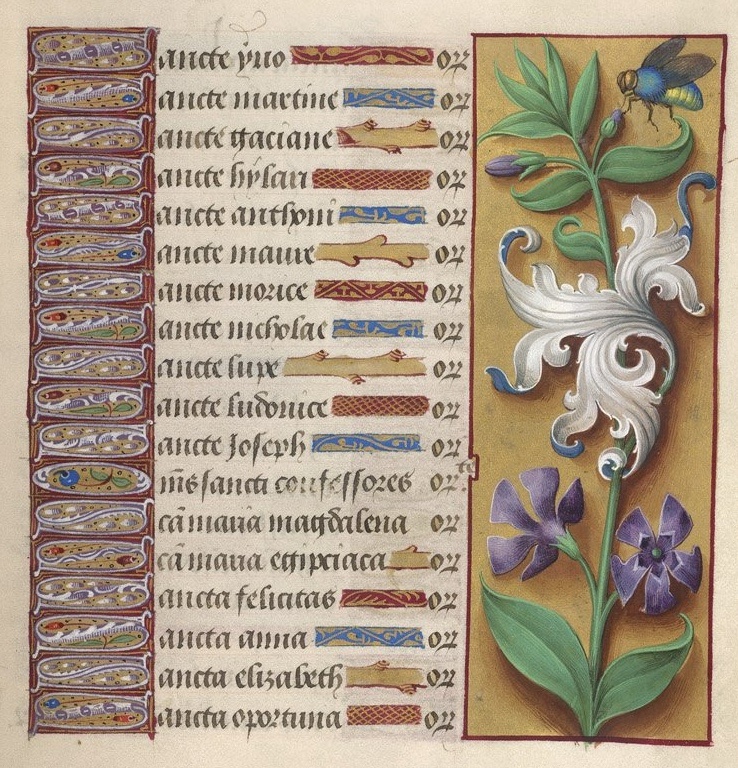 Sancte yuo oꝝ
Sancte martine oꝝ
Sancte gaciane oꝝ
Sancte hylari oꝝ
Sancte anthoni oꝝ
Sancte maure oꝝ
Sancte morice oꝝ
Sancte nicholae oꝝ
Sancte lupe oꝝ
Sancte ludouice oꝝ
Sancte Joseph oꝝ
Om̄s sancti confessores oꝝ te
Sc̄a maria magdalena oꝝ
Sc̄a maria egipciaca oꝝ
Sancta felicitas oꝝ
Sancta anna oꝝ
Sancta elizabeth oꝝ
Sancta oportuna oꝝ